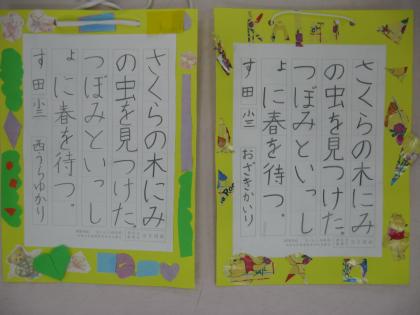 さくらの木にみ
の虫を見つけた。
つぼみといっし
ょに春を待つ。
す田 小三 おざきかいり
さくらの木にみ
の虫を見つけた。
つぼみといっし
ょに春を待つ。
す田 小三 西うらゆかり